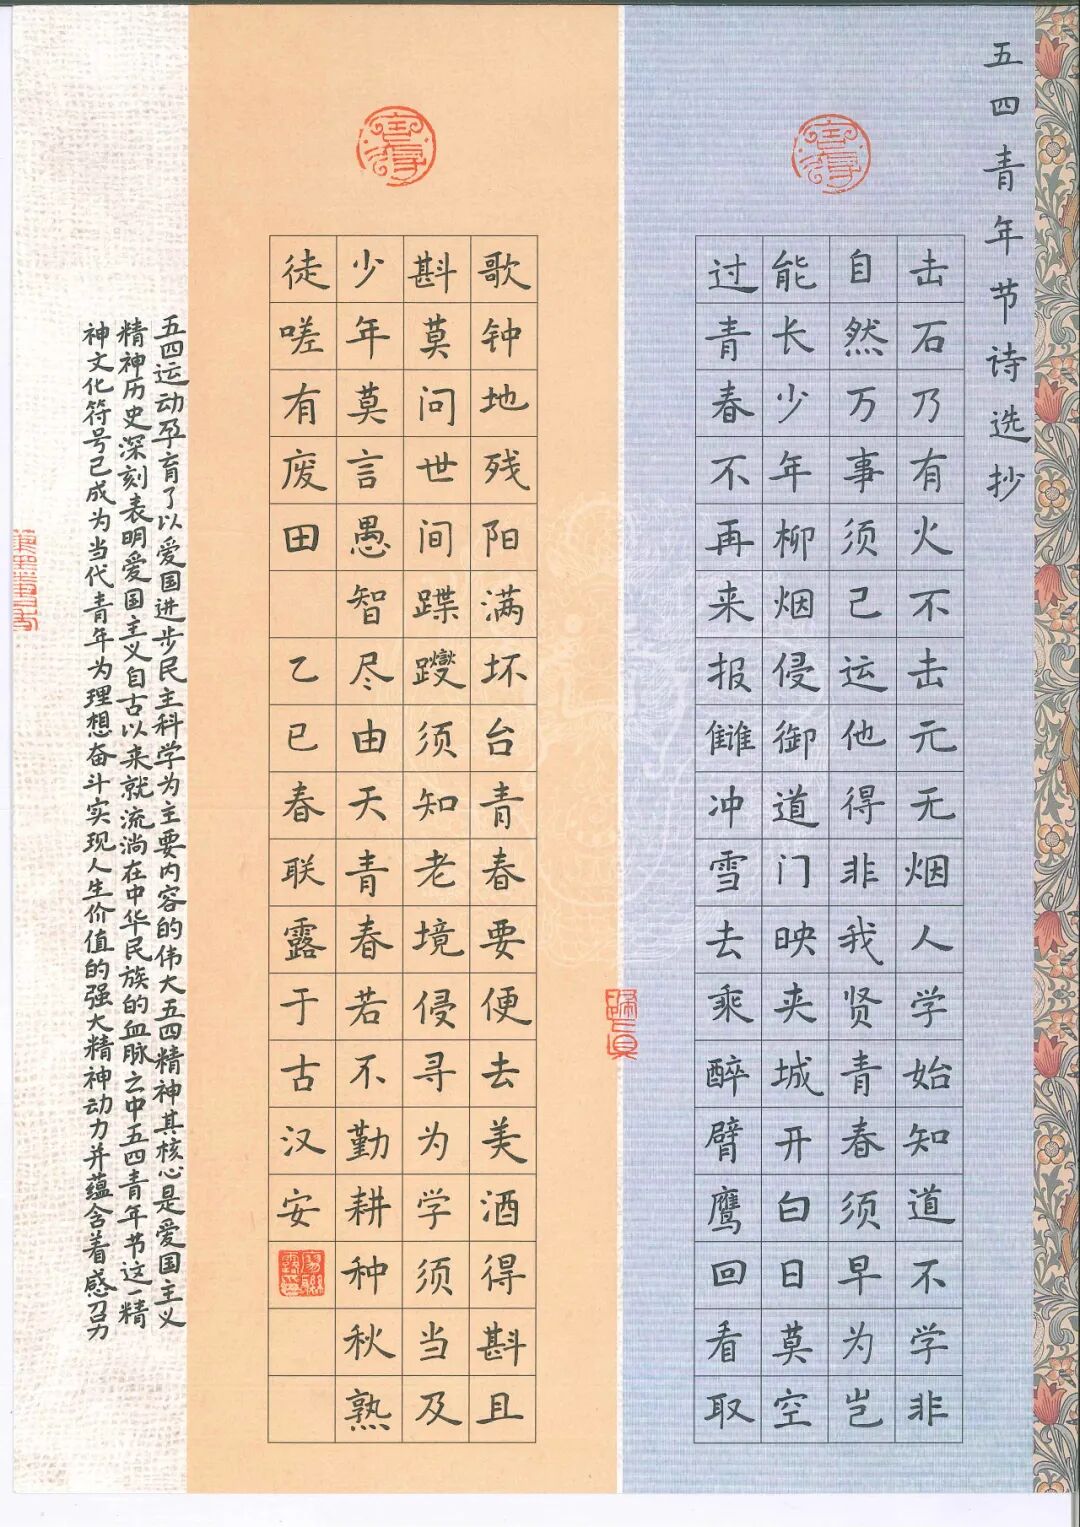 五四青年节诗选抄
击石乃有火不击元无烟人学始知道不学非
自然万事须己运他得非我贤青春须早为岂
能长少年柳烟侵御道门映夹城开白日莫空
过青春不再来报雠冲雪去乘醉臂鹰回看取
歌钟地残阳满坏台青春要便去美酒得斟且
斟莫问世间蹀躞须知老境侵寻为学须当及
少年莫言愚智尽由天青春若不勤耕种秋熟
徒嗟有废田 乙巳春联露于古汉安
五四运动孕育了以爱国进步民主科学为主要内容的伟大五四精神其核心是爱国主义
精神历史深刻表明爱国主义自古以来就流淌在中华民族的血脉之中五四青年节这一精
神文化符号已成为当代青年为理想奋斗实现人生价值的强大精神动力并蕴含着感召力